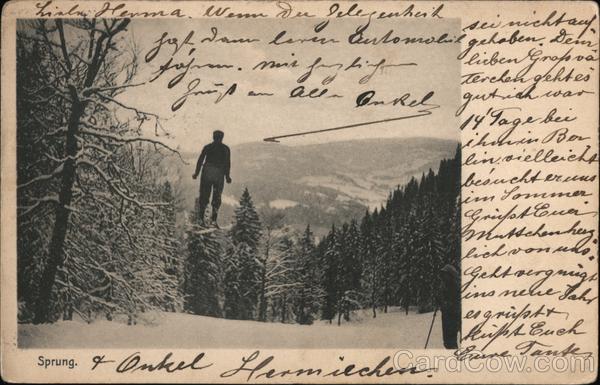 Liebe Herma. Wenn Du Gelegenheit
hast, dann lerne Automobil
fahren. Mit herzlichem
Gruß an Alle Onkel
sei nicht auf
gehoben. Dem
lieben Großva
terchen geht es
gut ich war
14 Tage bei
ihm in Ber
lin, vielleicht
besucht er uns
im Sommer
Grüßt Euer
Muttchen herz
lich von uns
Geht vergnügt
ins neue Jahr
es grüßt &
küßt Euch
Eure Tante
& Onkel Hermiechen.
Sprung.
CardCow.com